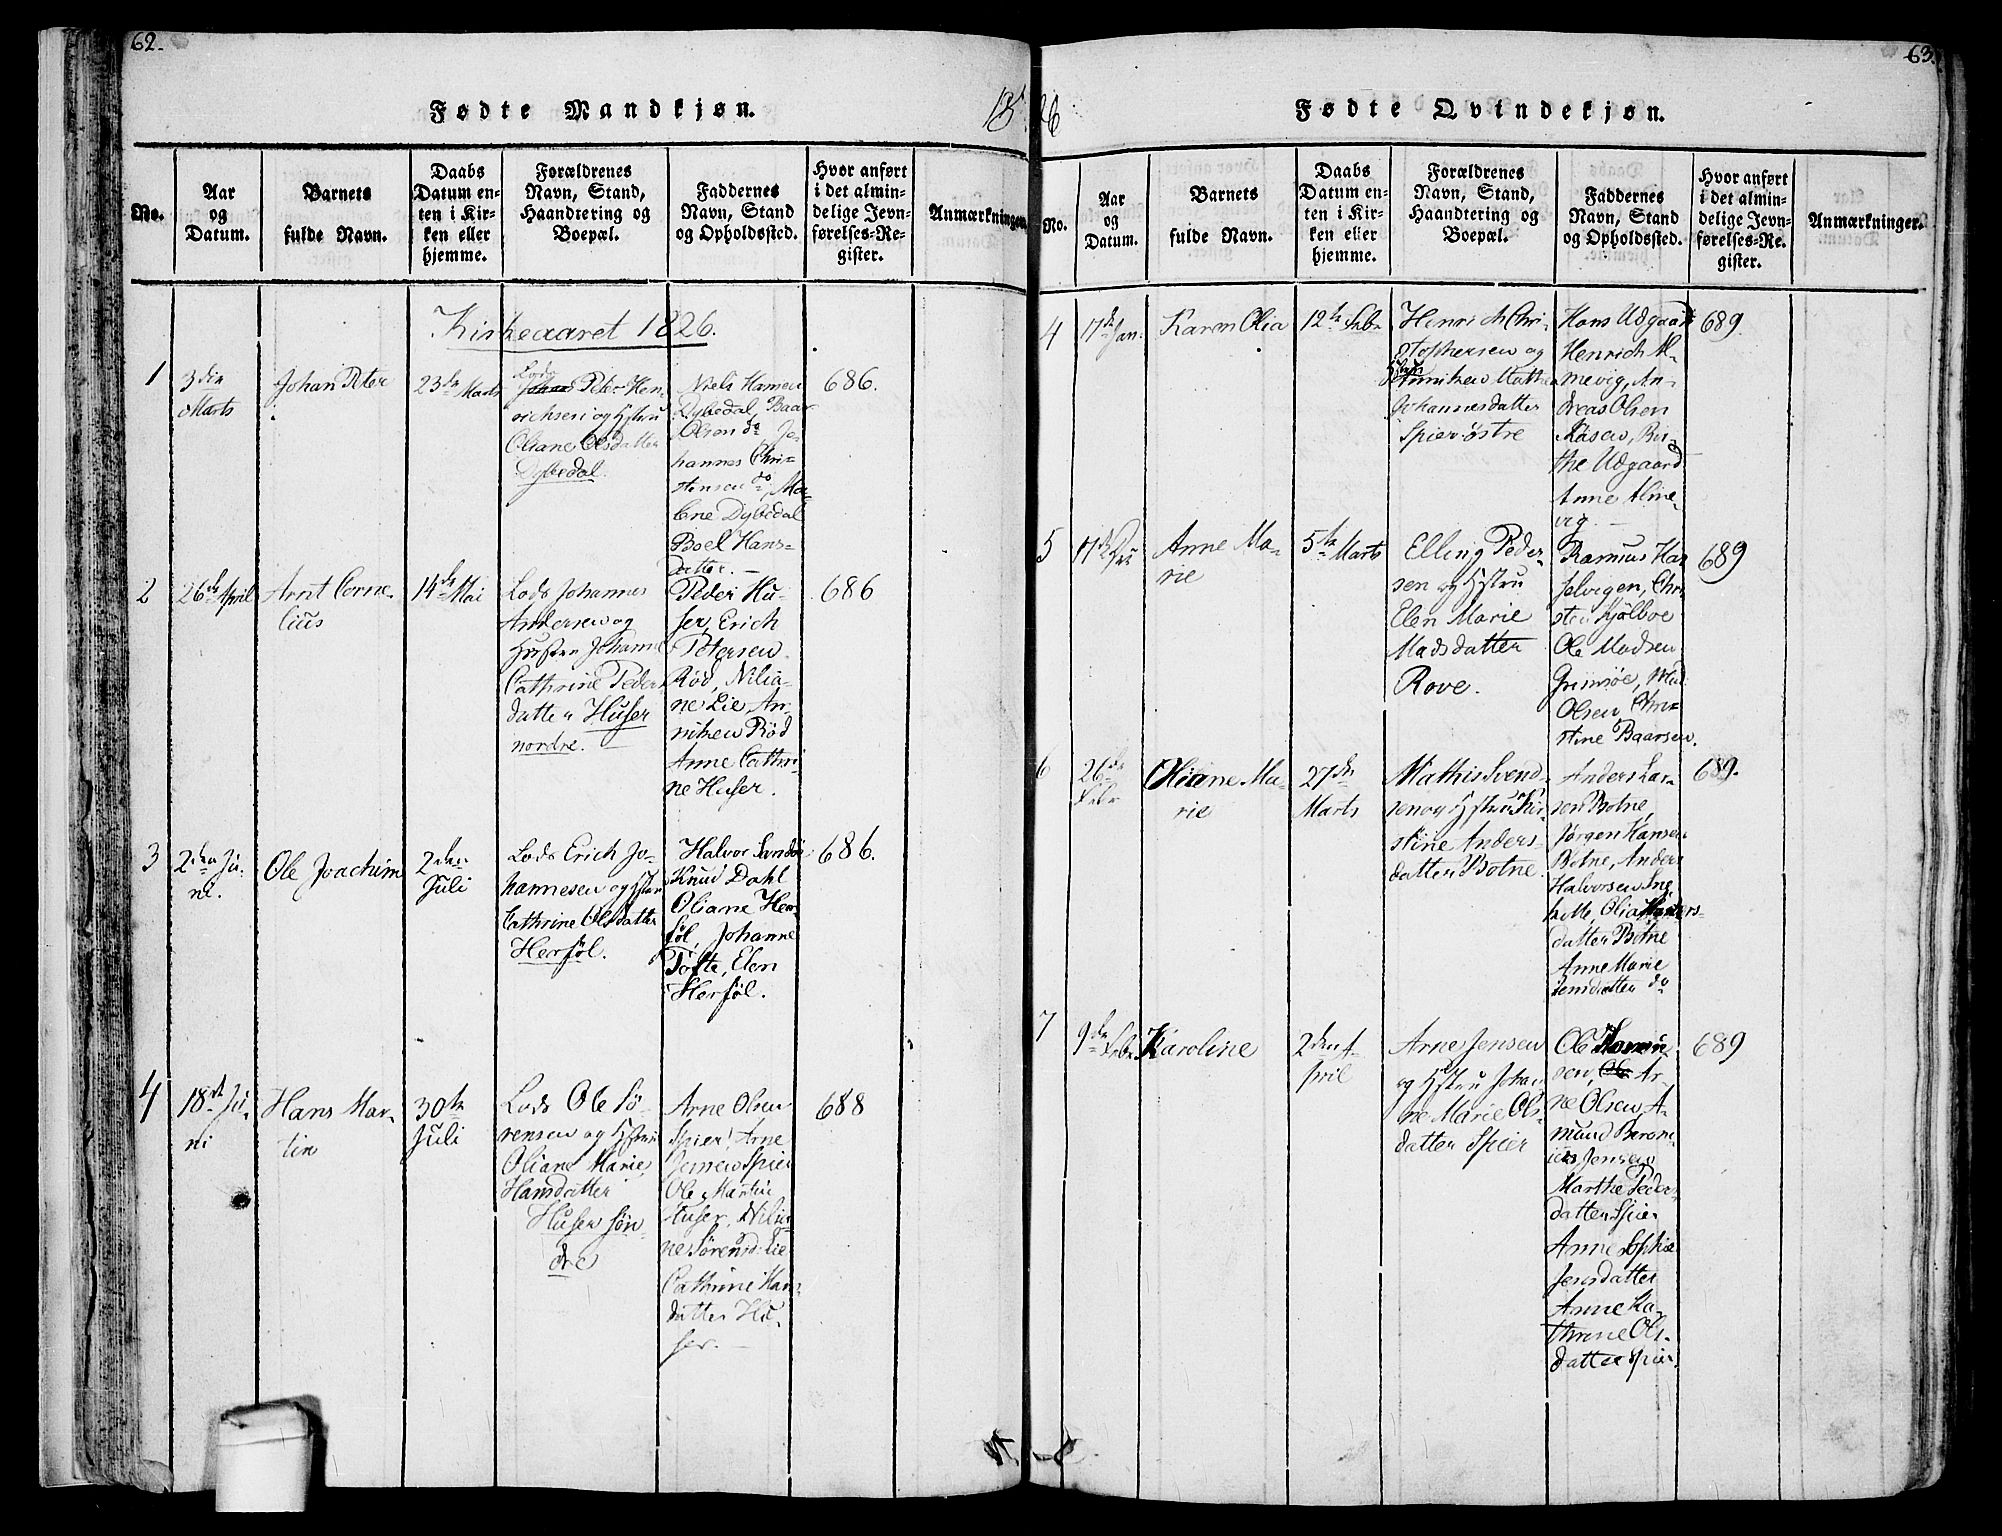 62.
Fødte Mandkjøn.
18
No.
Aar
og
Datum.
Barnets
fulde Navn.
Daabs
Datum en-
ten i Kir-
ken eller
hjemme.
Forældrenes
Navn, Stand,
Haandtering og
Boepæl.
Faddernes
Navn, Stand
og Opholdssted.
Hvor anført
i det almin-
delige Jevn-
førelses-Re-
gister.
Anmærkninger
Kirkeaaret 1826.
1
3die
Marts
Johan Peter
23de Marts
Lods
Johan Peter Hen-
richsen og Hstru
Oliane Olsdatter
Dybedal.
Niels Hansen
Dybedal, Baar
Olson do, Jo-
hannes Chri-
stensen do, Ma-
lene Dybedal
Boel Hans-
datter.
686.
2
26de April
Arnt Corne-
lius
14de Mai
Lods Johannes
Andersen og
Hustru Johanne
Cathrine Peders
datter Huser
nordre.
Peder Hu-
ser, Erich
Petersen
Rød, Nilia-
ne Lie, An-
niken Rød
Anne Cathri-
ne Huser.
686
3
2den Ju-
ni.
Ole Joachim
2den
Juli
Lods Erich Jo-
hannesen og Hstru
Cathrine Olsdatter
Herføl.
Halvor Sandøe
Knud Dahl
Oliane Her-
føl, Johanne
Tofte, Elen
Herføl.
686.
4
18de Ju-
ni
Hans Mar-
tin
30te
Juli
Lods Ole Sø-
rensen og Hstru
Oliane Marie
Hansdatter
Huser søn
dre
Arne Olsen
Spier, Arne
Jensen Spier
Ole Martin
Huser, Nilia-
ne Sørensd: Lie
Cathrine Hans
datter Hu-
ser.
688
63.
Fødte Qvindekjøn.
26
No.
Aar
og
Datum.
Barnets
fulde Navn.
Daabs
Datum en-
ten i Kir-
ken eller
hjemme.
Forældrenes
Navn, Stand,
Haandtering og
Boepæl.
Faddernes
Navn, Stand
og Opholdssted.
Hvor anført
i det almin-
delige Jevn-
førelses-Re-
gister.
Anmærkninger.
4
17de Jan.
Karen Olia
12te Febr
Henrich Chri-
stophersen og
Hstru
Anniken Mathea
Johannesdatter
Spier østre
Hans Udgaard
Henrich Al-
mevig, An-
dreas Olsen
Kasen, Bir-
the Udgaard
Anne Alme-
vig
689.
5
17de
Anne Ma-
rie
5te Marts
Elling Peder
sen og Hstru
Elen Marie
Madsdatter
Rove.
Rasmus Han
selvigen, Chri
sten Kjølboe
Ole Madsen
Grimsøe, Mad
Olsen, Chri-
stine Baarsen.
689
6
26de
Febr
Oliane Ma-
rie
27de
Marts
Mathis Svend-
sen og Hstru Kir-
stine Anders-
datter Botne.
Anders Lar-
sen Botne,
Jørgen Hansen
Botne, Anders
Halvorsen Ing
holte, Olia Anders-
datter Botne
Anne Marie
Jensdatter do
689.
7
9de Febr.
Karoline
2den A-
pril
Arne Jensen
og Hstru Johan
ne Marie Ols
datter Spier
Ole
sen, Ole Ar-
ne Olsen A-
mund
Jensen
Marthe Peders
datter Spier
Anne Sophie
Jensdatter
Anne Ka-
thrine Ols-
datter Spier.
689